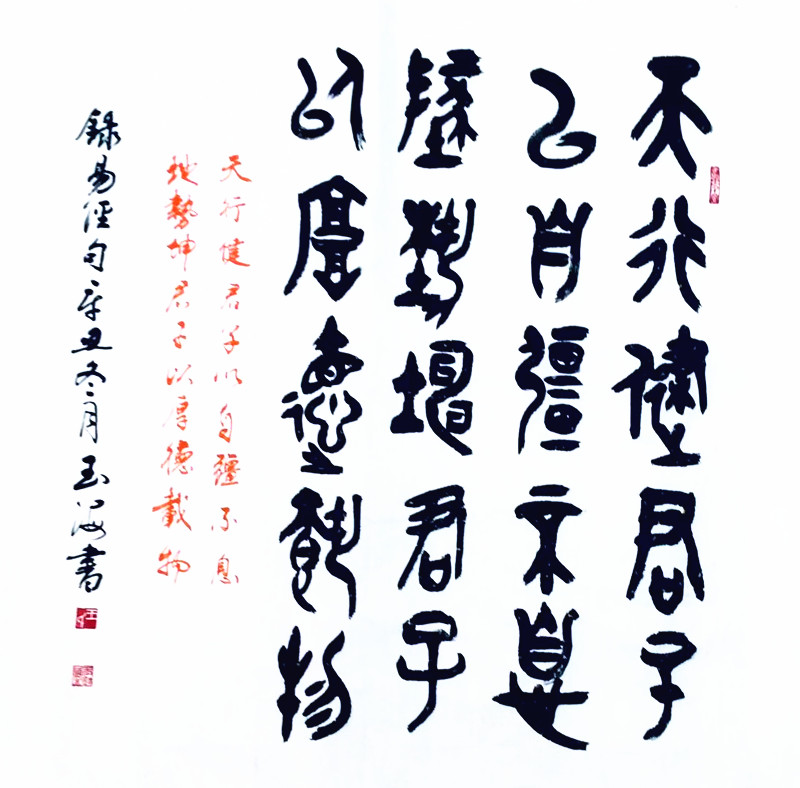 天行健君子
以自彊不息
地勢坤君子
以厚德載物
天行健君子以自彊不息
地勢坤君子以厚德載物
錄易經句辛丑冬月玉海書